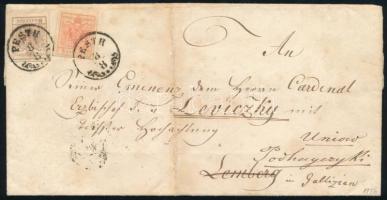 PESTH
8/8
PESTH
8/8
An
Seiner Eminenz dem Herrn Cardinal
Erzbischof
Leviczky mit
Hochachtung
Univw
Podhayczyki
Lemberg in Gallizien